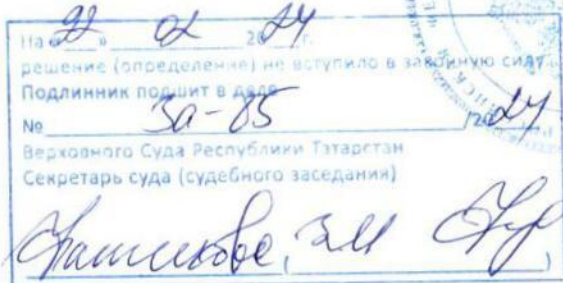 На «22» 02 2024 г.
решение (определение) не вступило в законную силу.
Подлинник подшит в деле
№ 3а-85 /2024
Верховного Суда Республики Татарстан
Секретарь суда (судебного заседания)